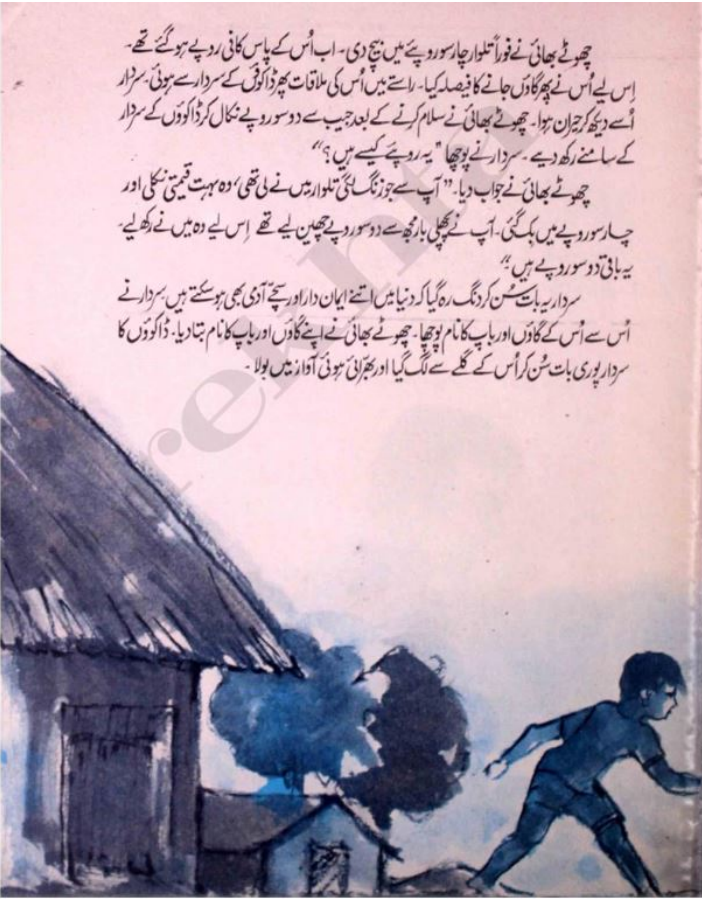 چھوٹے بھائی نے فوراً تلوار چار سو روپئے میں بیچ دی۔ اب اُس کے پاس کافی روپے ہو گئے تھے۔
اِس لیے اُس نے پھر گاؤں جانے کا فیصلہ کیا۔ راستے میں اُس کی ملاقات پھر ڈاکوؤں کے سردار سے ہوئی۔ سردار
اُسے دیکھ کر حیران ہوا۔ چھوٹے بھائی نے سلام کرنے کے بعد جیب سے دو سو روپے نکال کر ڈاکوؤں کے سردار
کے سامنے رکھ دیے۔ سردار نے پوچھا "یہ روپئے کیسے ہیں؟"
چھوٹے بھائی نے جواب دیا۔ "آپ سے جو زنگ لگی تلوار میں نے لی تھی، وہ بہت قیمتی نکلی اور
چار سو روپے میں بک گئی۔ آپ نے پچھلی بار مجھ سے دو سو روپے چھین لیے تھے اِس لیے وہ میں نے رکھ لیے۔
یہ باقی دو سو روپے ہیں۔"
سردار یہ بات سُن کر دنگ رہ گیا کہ دنیا میں اتنے ایمان دار اور سچّے آدمی بھی ہو سکتے ہیں۔ سردار نے
اُس سے اُس کے گاؤں اور باپ کا نام پوچھا۔ چھوٹے بھائی نے اپنے گاؤں اور باپ کا نام بتا دیا۔ ڈاکوؤں کا
سردار پوری بات سُن کر اُس کے گلے سے لگ گیا اور بھرّائی ہوئی آواز میں بولا۔
rekhta